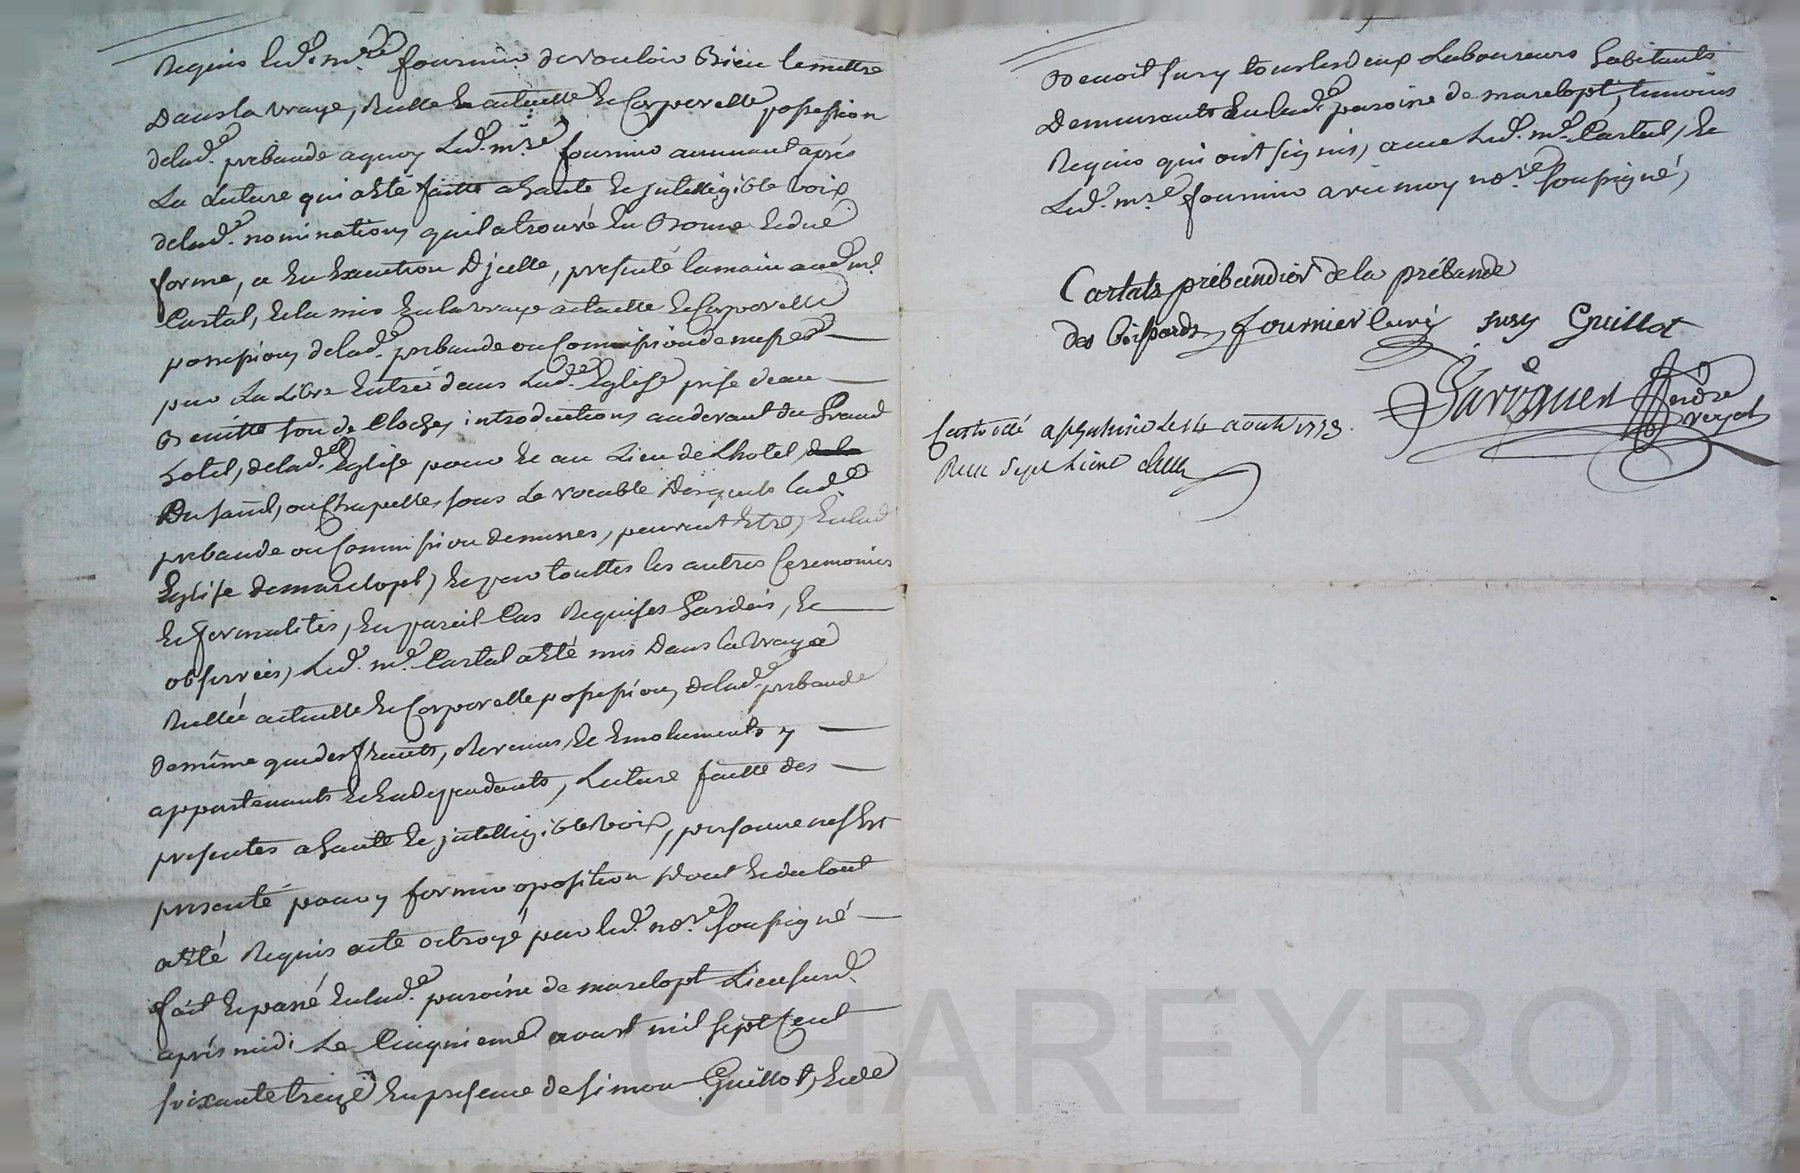 Requis led. mre fournier de vouloir Bien le mettre
Dans la vraye, Reelle Et actuelle Et Corporelle possession
delade. prebande aquoy Led. mre fournier auroit après
La Lecture qui a Eté faitte a haute Et jntelligible voix
delade. nomination, quil a trouvé En Bonne Et dué
forme, et En Execution D'jcelle, presenté la main aud. mre
Cartal, Et la mis En la vraye actuelle Et Corporelle
possession, delade. prebande ou Commission de messes
par La Libre Entrée dans Lade. Eglise prise d'eau
Benitte son de Cloche, introduction au devant du Grand
hotel, delade. Eglise pour Et au Lieu de Lhotel, de la
Du saint, ou Chapelles sous Le vocable Desquels lade.
prebande ou Commission de messes, peuvent Etre, En lad.
Eglise de marclopt, Et par touttes les autres Ceremonies
Et formalités, En pareil Cas Requises Gardées, Et
observées, Led. mre. Cartal a Eté mis Dans la vraye
Réelle actuelle Et Corporelle possession, delade. prebande
de même que des fruits, Revenus, Et Emoluments y
appartenants Et En dependants, Lecture faitte des
presentes a haute Et jntelligible voix, personne ne s'Est
presenté pour y former oposition dont Et du tout
a Eté Requis acte octroyé par led. nore soussigné
fait Et passé En lade. paroisse de marclopt Lieu susd.
après midi Le Cinquieme aoust mil sept Cent
soixante treize En presence de simon Guillot, Et de
Benoit Sury tous les deux Laboureurs habitants
Demeurants En lade. paroisse de marclopt, temoins
Requis qui ont signés, avec Led. mre. Cartal, Et
Led. mre fournier avec moy nore soussigné,
Cartals prébandier de la prébande
des boissards fournier Curé sury Guillot
Controllé a le 14 aoust 1773.
Reçu Sept Livres